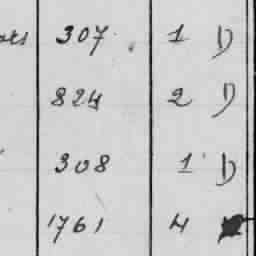 307 1 D
824 2 D
308 1 D
1761 4